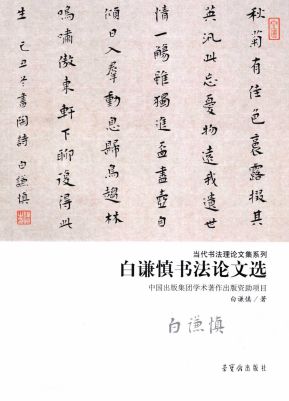 秋菊有佳色裛露掇其
英汎此忘憂物遠我遺世
情一觴雖進盃盡壺自
傾日入羣動息歸鳥趨林
鳴嘯傲東軒下聊復得此
生 己丑冬書陶詩 白謙慎
当代书法理论文集系列
白谦慎书法论文选
中国出版集团学术著作出版资助项目
白谦慎／著
白谦慎
榮寶齋出版社